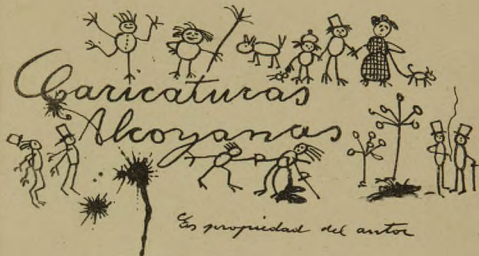 Caricaturas
Alcoyanas
Es propiedad del autor